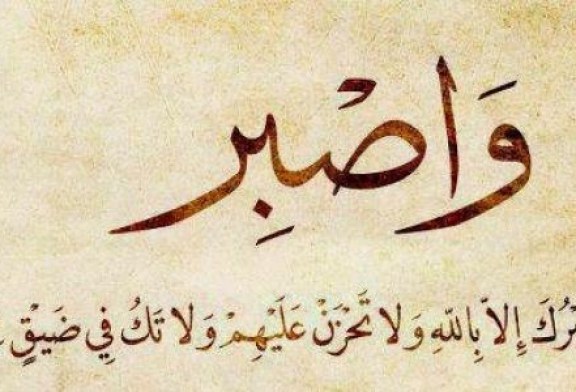 وَاصْبِر
إِلاَّ بِاللّهِ وَلاَ تَحْزَنْ عَلَيْهِمْ وَلاَ تَكُ فِي ضَيْقٍ